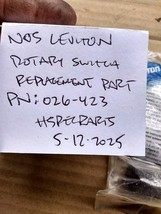 NOS LEVITON
ROTARY SWITCH
REPLACEMENT PART
PN: 026-423
HSPECPARTS
5-12-2025